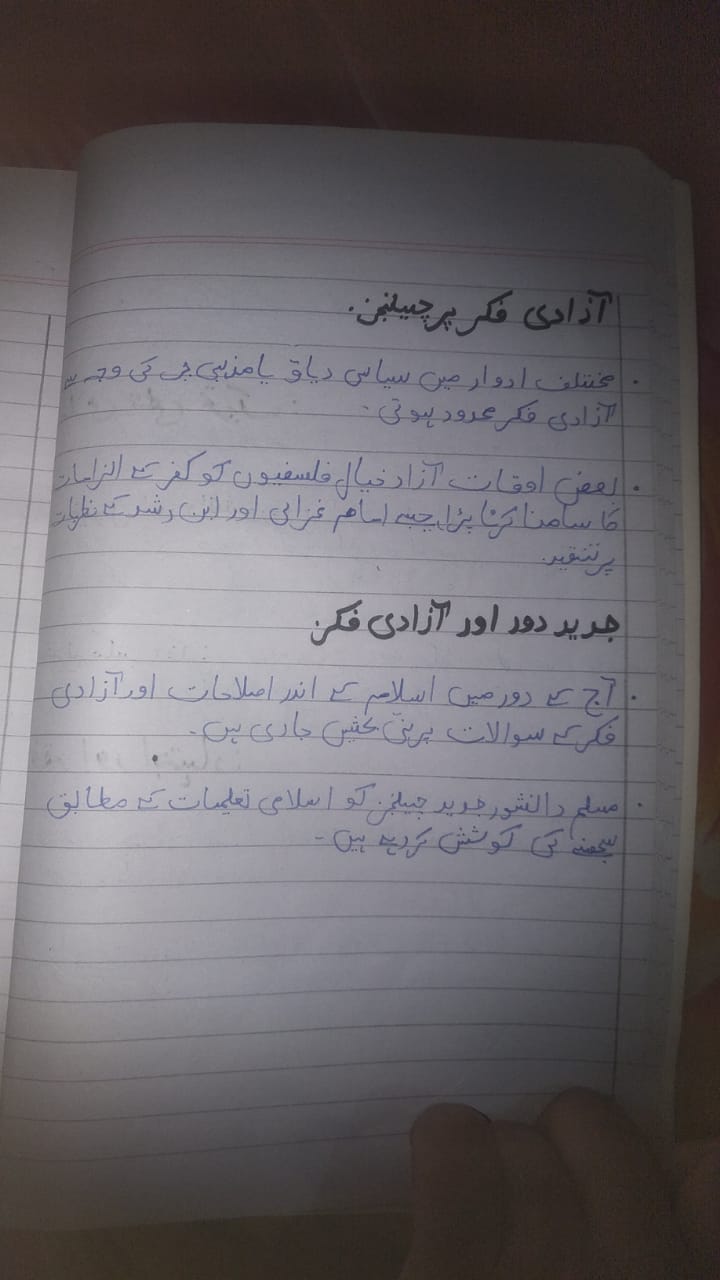 آزادی فکر پر چیلنجز.
• مختلف ادوار میں سیاسی دباؤ یا مذہبی جبر کی وجہ سے
آزادی فکر محدود ہوئی۔
• بعض اوقات آزاد خیال فلسفیوں کو کفر کے الزامات
کا سامنا کرنا پڑا، جیسے امام غزالی اور ابن رشد کے نظریات
پر تنقید۔
جدید دور اور آزادی فکر
• آج کے دور میں اسلام کے اندر اصلاحات اور آزادی
فکر کے سوالات پر نئی بحثیں جاری ہیں۔
• مسلم دانشور جدید چیلنجز کو اسلامی تعلیمات کے مطابق
سمجھنے کی کوشش کر رہے ہیں۔